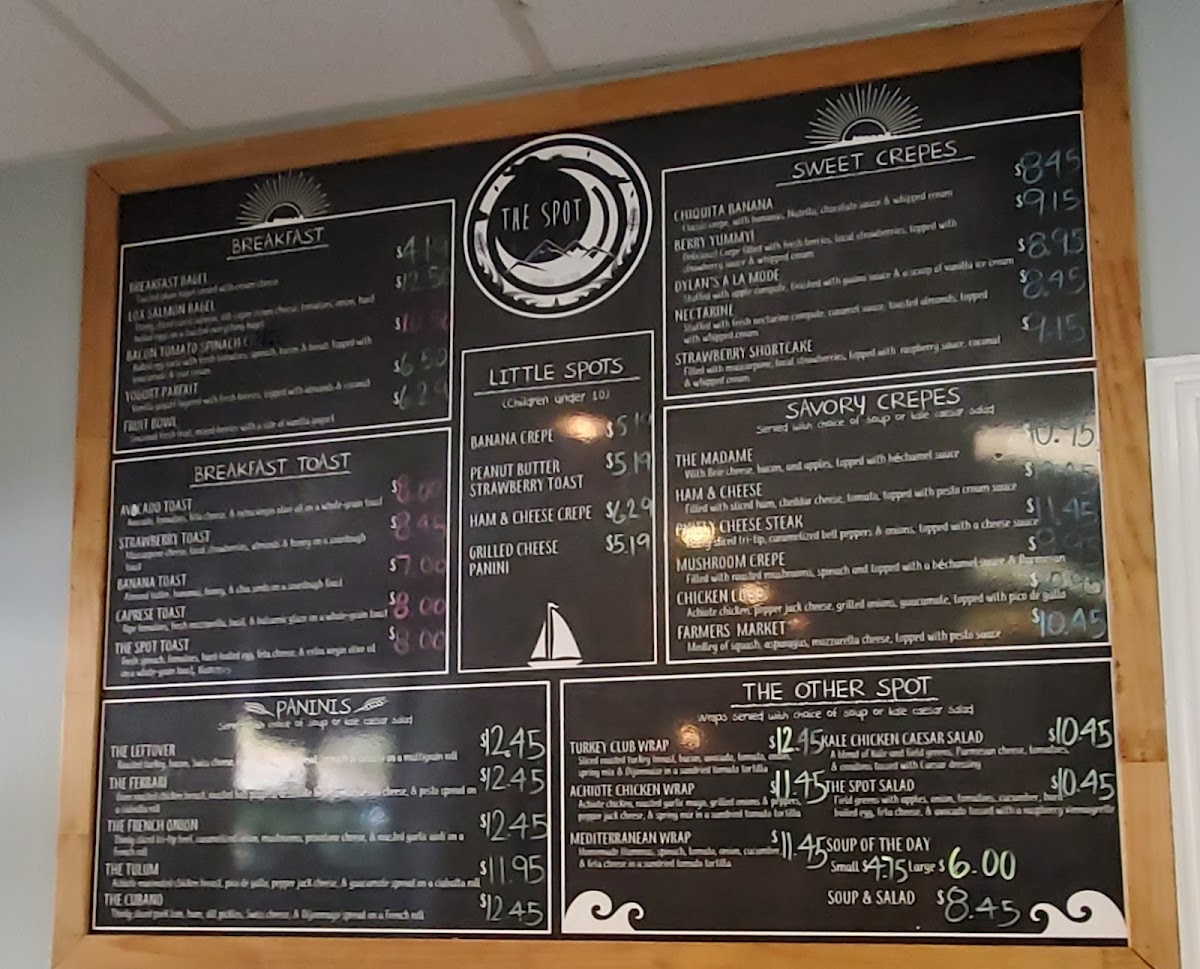 THE SPOT
BREAKFAST
BREAKFAST BAGEL $4.19
Toasted plain bagel served with cream cheese
LOX SALMON BAGEL $12.50
BACON TOMATO SPINACH
YOGURT PARFAIT $6.50
Vanilla yogurt layered with fresh berries, topped with almonds & coconut
FRUIT BOWL $6.29
Seasonal fresh fruit, mixed berries with a side of vanilla yogurt
BREAKFAST TOAST
AVOCADO TOAST $8.00
Avocado, tomatoes, feta cheese, & extra virgin olive oil on a whole-grain toast
STRAWBERRY TOAST $8.45
Mascarpone cheese, local strawberries, almonds & honey on a sourdough
toast
BANANA TOAST $7.00
Almond butter, bananas, honey, & chia seeds on a sourdough toast
CAPRESE TOAST $8.00
Ripe tomatoes, fresh mozzarella, basil, & balsamic glaze on a whole-grain toast
THE SPOT TOAST $8.00
Fresh spinach, tomatoes, hard-boiled egg, feta cheese, & extra virgin olive oil
on a whole-grain toast, Hummus
LITTLE SPOTS
(Children under 10)
BANANA CREPE $5.19
PEANUT BUTTER $5.19
STRAWBERRY TOAST
HAM & CHEESE CREPE $6.29
GRILLED CHEESE $5.19
PANINI
SWEET CREPES
CHIQUITA BANANA $8.45
Classic crepe, with bananas, Nutella, chocolate sauce & whipped cream
BERRY YUMMY! $9.15
Delicious! Crepe filled with fresh berries, local strawberries, topped with
strawberry sauce & whipped cream
DYLAN'S A LA MODE $8.95
Stuffed with apple compote, finished with sauce & a scoop of vanilla ice cream
NECTARINE $8.45
Stuffed with fresh nectarine compote, caramel sauce, toasted almonds, topped
with whipped cream
STRAWBERRY SHORTCAKE $9.15
Filled with mascarpone, local strawberries, topped with raspberry sauce, coconut
& whipped cream
SAVORY CREPES
Served with choice of soup or kale caesar salad
THE MADAME 10.95
With Brie cheese, bacon, and apples, topped with béchamel sauce
HAM & CHEESE
Filled with sliced ham, cheddar cheese, tomato, topped with pesto cream sauce
CHEESE STEAK $11.45
sliced tri-tip, caramelized bell peppers & onions, topped with a cheese sauce
MUSHROOM CREPE
Filled with roasted mushrooms, spinach and topped with a béchamel sauce & Parmesan
CHICKEN
Achiote chicken, pepper jack cheese, grilled onions, guacamole, topped with pico de gallo
FARMERS MARKET $10.45
Medley of squash, asparagus, mozzarella cheese, topped with pesto sauce
PANINIS
Served with choice of soup or kale caesar salad
THE LEFTOVER $12.45
Roasted turkey, bacon, Swiss cheese, on a multigrain roll
THE FERRARI $12.45
cheese, & pesto spread on
a ciabatta roll
THE FRENCH ONION $12.45
Thinly sliced tri-tip beef, caramelized onion, mushrooms, provolone cheese, & roasted garlic aioli on a
French roll
THE TULUM $11.95
Achiote marinated chicken breast, pico de gallo, pepper jack cheese, & guacamole spread on a ciabatta roll
THE CUBANO $12.45
Thinly sliced pork loin, ham, dill pickles, Swiss cheese, & Dijonnaise spread on a French roll
THE OTHER SPOT
Wraps served with choice of soup or kale caesar salad
TURKEY CLUB WRAP $12.45
Sliced roasted turkey breast, bacon, avocado, tomato, onion,
spring mix & Dijonnaise in a sundried tomato tortilla
ACHIOTE CHICKEN WRAP $11.45
Achiote chicken, roasted garlic mayo, grilled onions & peppers,
pepper jack cheese, & spring mix in a sundried tomato tortilla
MEDITERRANEAN WRAP $11.45
Homemade Hummus, spinach, tomato, onion, cucumber
& feta cheese in a sundried tomato tortilla
KALE CHICKEN CAESAR SALAD $10.45
A blend of Kale and field greens, Parmesan cheese, tomatoes,
& croutons tossed with Caesar dressing
THE SPOT SALAD $10.45
Field greens with apples, onion, tomatoes, cucumber, hard
boiled egg, feta cheese, & avocado tossed with a raspberry vinaigrette
SOUP OF THE DAY
Small $4.75 Large $6.00
SOUP & SALAD $8.45